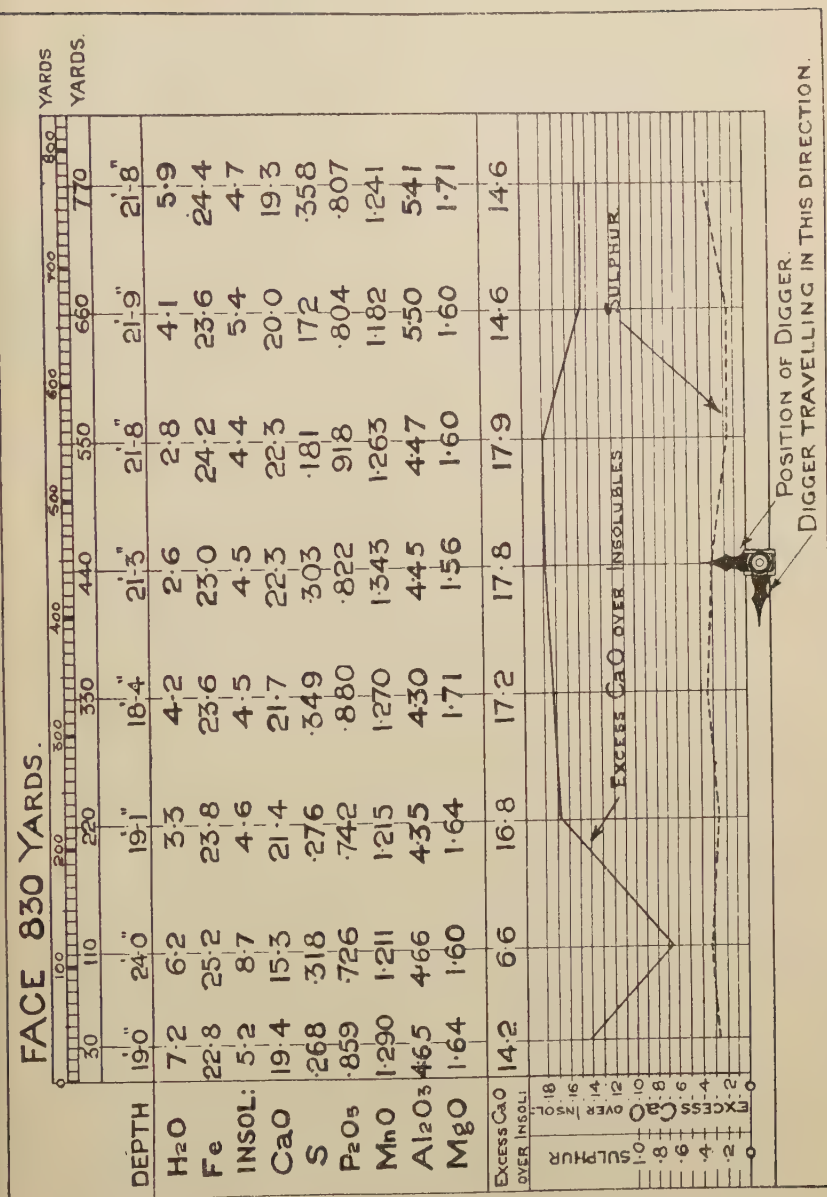 FACE 830 YARDS.
0 100 200 300 400 500 600 700 800 YARDS
30 110 220 330 440 550 660 770 YARDS.
DEPTH 19'-0" 24'-0" 19'-1" 18'-4" 21'-3" 21'-8" 21'-9" 21'-8"
H2O 7·2 6·2 3·3 4·2 2·6 2·8 4·1 5·9
Fe 22·8 25·2 23·8 23·6 23·0 24·2 23·6 24·4
INSOL: 5·2 8·7 4·6 4·5 4·5 4·4 5·4 4·7
CaO 19·4 15·3 21·4 21·7 22·3 22·3 20·0 19·3
S ·268 ·318 ·276 ·349 ·303 ·181 172 ·358
P2O5 ·859 ·726 ·742 ·880 ·822 918 ·804 ·807
MnO 1·290 1·211 1·215 1·270 1·343 1·263 1·182 1·241
Al2O3 4·65 4·66 4·35 4·30 4·45 4·47 5·50 5·41
MgO 1·64 1·60 1·64 1·71 1·56 1·60 1·60 1·71
EXCESS CaO
OVER INSOL: 14·2 6·6 16·8 17·2 17·8 17·9 14·6 14·6
SULPHUR
1·0
·8
·6
·4
·2
0
EXCESS CaO
OVER INSOL:
18
16
14
12
10
8
6
4
2
0
EXCESS CaO OVER INSOLUBLES
SULPHUR
POSITION OF DIGGER.
DIGGER TRAVELLING IN THIS DIRECTION.